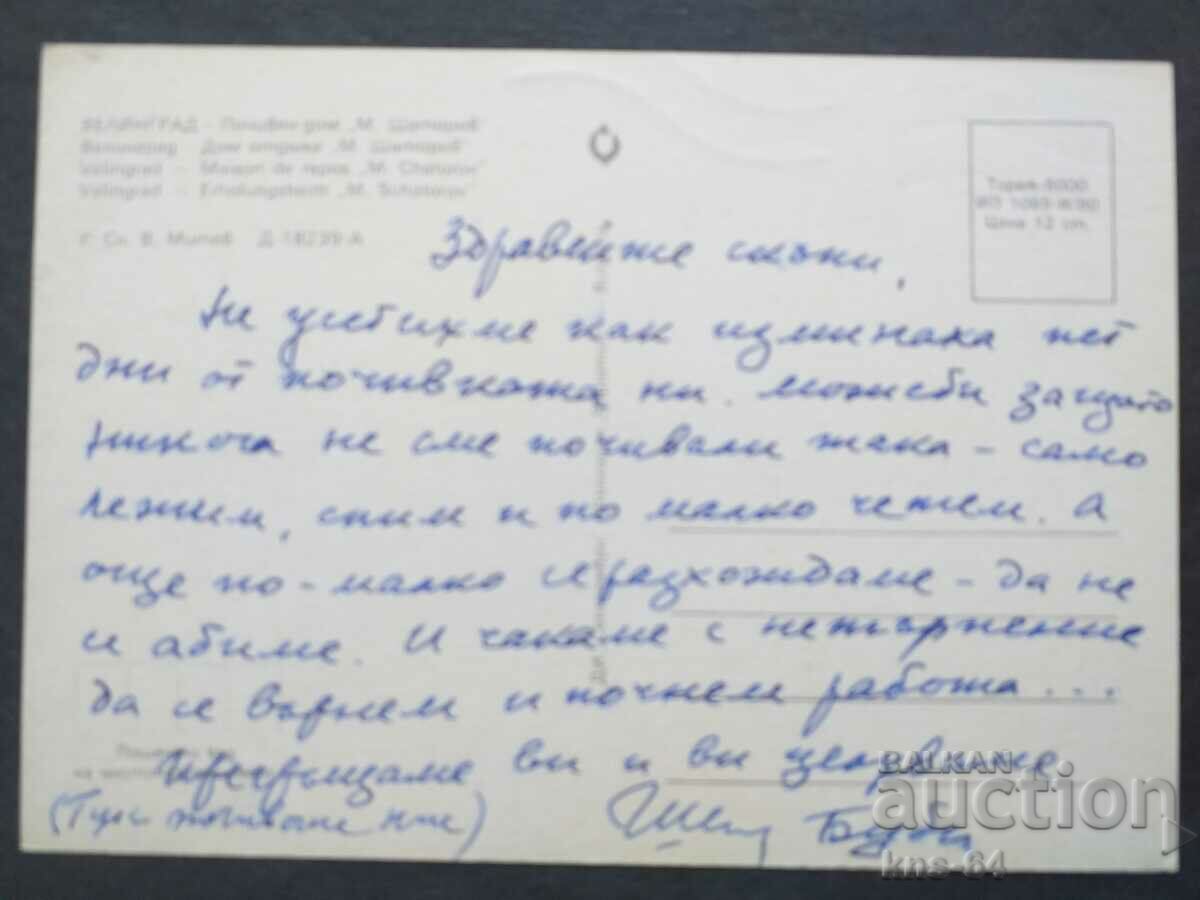 ВЕЛИНГРАД – Почивен дом „М. Шатаров"
Велинград – Дом отдыха „М. Шатаров"
Velingrad – Maison de repos „M. Chatarov"
Velingrad – Erholungsheim „M. Schatarov"
Д-18239-А
Тираж 8000
Цена 12 ст.
Здравейте скъпи,
Не усетихме как изминаха пет
дни от почивката ни. Може би защото
никога не сме почивали така – само
лежим, спим и по малко четем. А
още по-малко се разхождаме – да не
се абиме. И чакаме с нетърпение
да се върнем и почнем работа...
Прегръщаме ви и ви целуваме
(Тук почиваме ние)
Буби
BALKAN
auction
kns-64